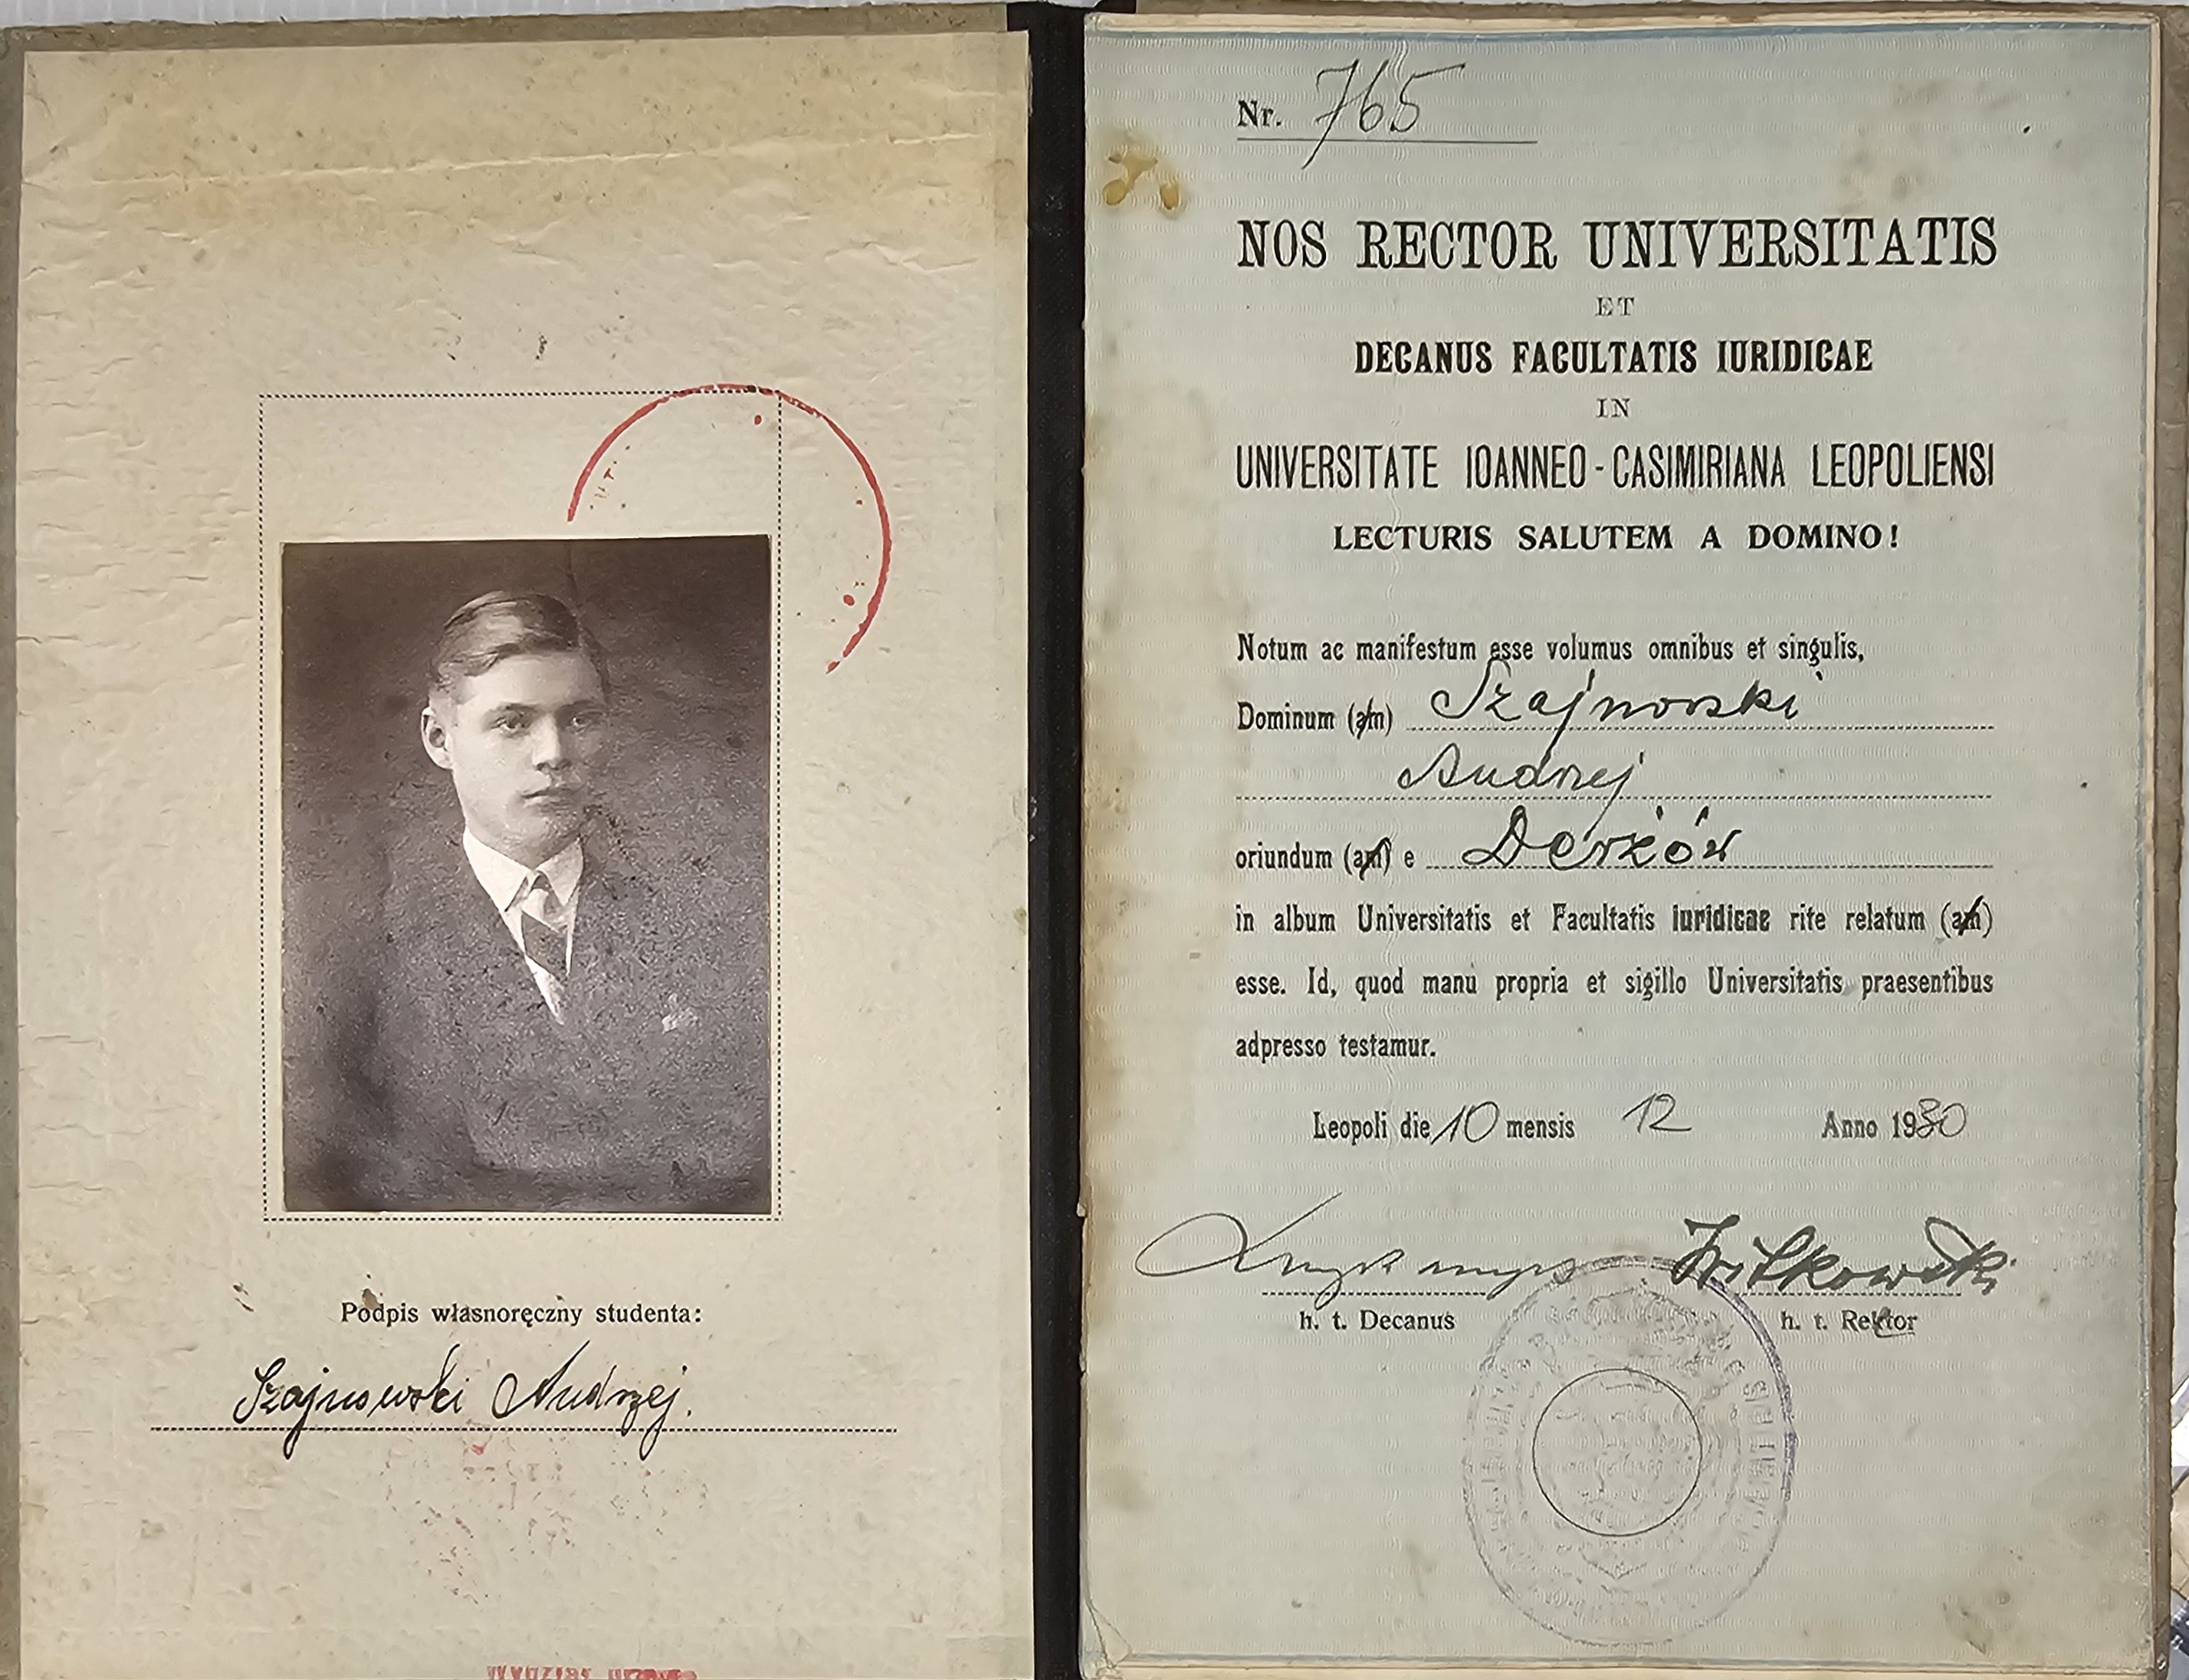 Podpis własnoręczny studenta:
Szajnowski Andrzej.
Nr. 765
NOS RECTOR UNIVERSITATIS
ET
DECANUS FACULTATIS IURIDICAE
IN
UNIVERSITATE IOANNEO-CASIMIRIANA LEOPOLIENSI
LECTURIS SALUTEM A DOMINO!
Notum ac manifestum esse volumus omnibus et singulis,
Dominum (am) Szajnowski
Andrzej
oriundum (am) e Derżów
in album Universitatis et Facultatis iuridicae rite relatum (am)
esse. Id, quod manu propria et sigillo Universitatis praesentibus
adpresso testamur.
Leopoli die 10 mensis 12 Anno 1930
Witkowski
h. t. Decanus h. t. Rektor